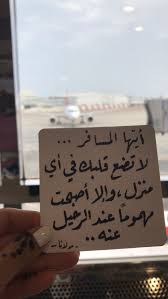 أيّها المسافر ...
لا تضع قلبك في أي
منزل، وإلا أصبحت
مهموماً عند الرحيل
عنه ..
- مولانا -